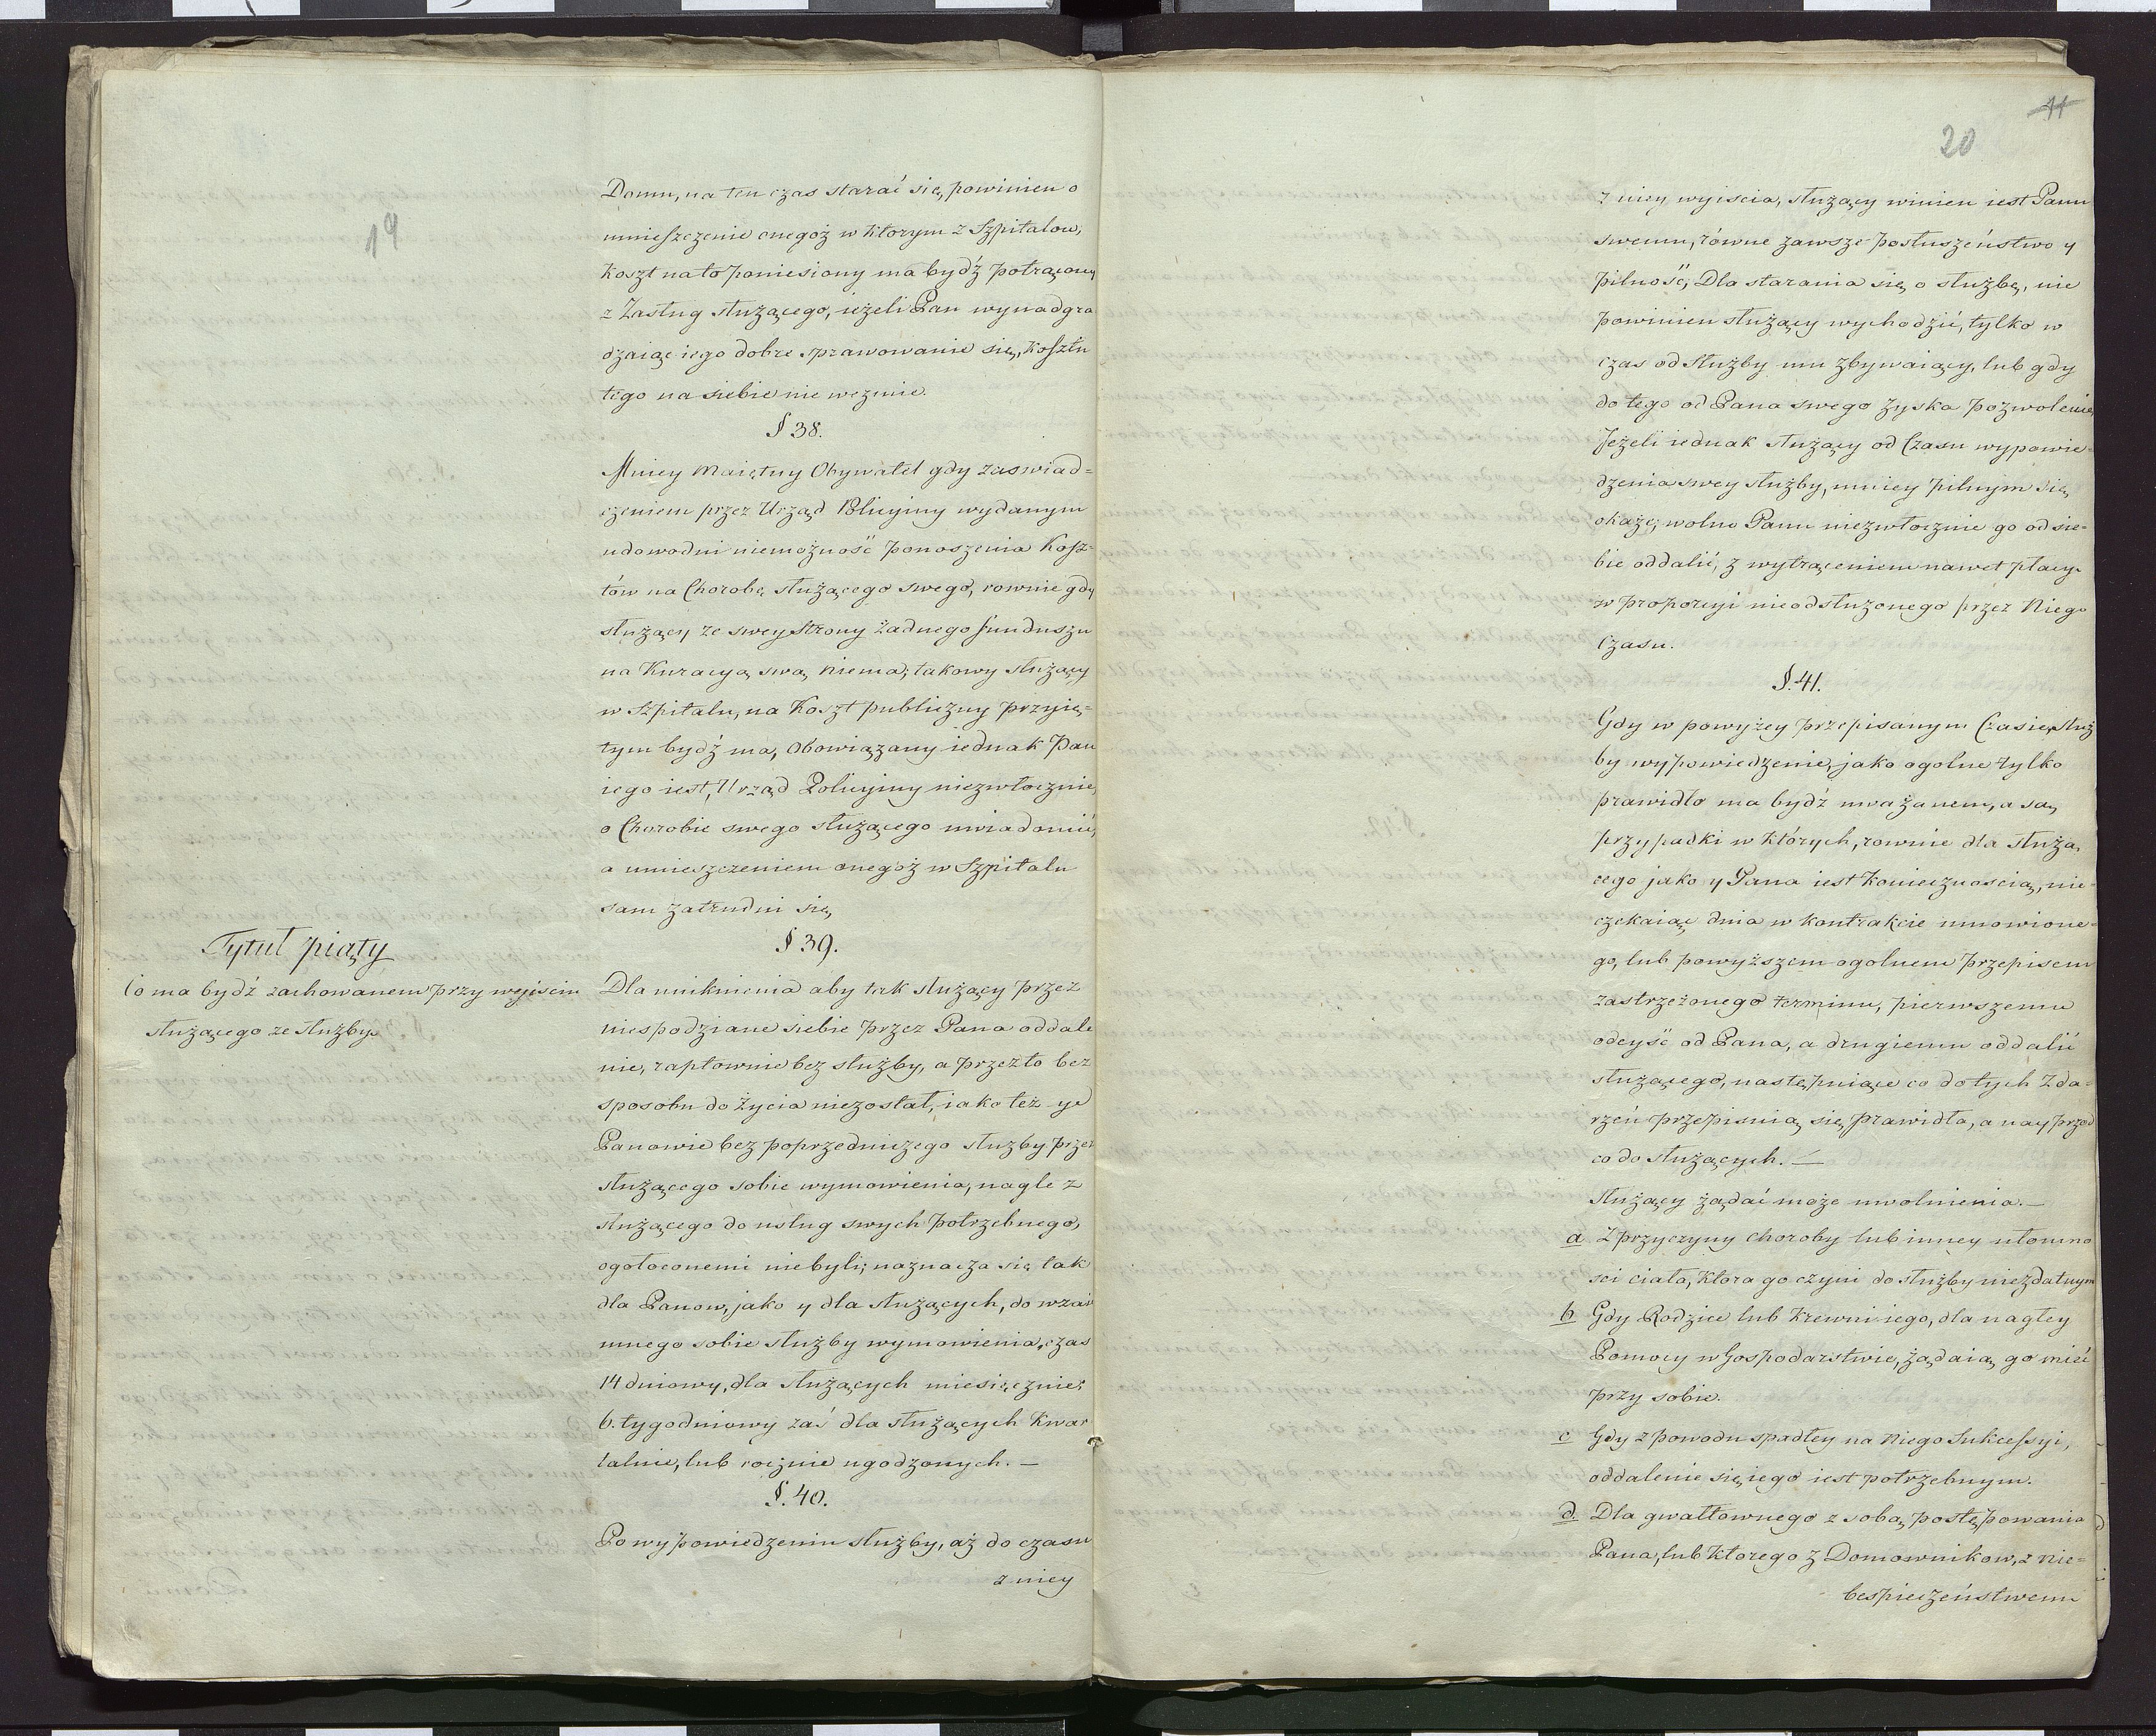 19
Domu, na ten czas starać się, powinien o
umieszczenie onegoż w którym z Szpitalow,
Koszt na to poniesiony ma bydź potrącony
z Zasług służącego, ieżeli Pan wynadgra
dzaiąc iego dobre sprawowanie się, kosztu
tego na siebie nie weźmie.
§ 38.
Mniey Maiętny Obywatel gdy zaswiad=
czeniem przez Urząd Policyiny wydanym
udowodni niemożność ponoszenia Kosz=
tów na Chorobę służącego swego, rownie gdy
służący ze swey Strony żadnego funduszu
na Kuracyą swą niema; takowy służący
w Szpitalu, na Koszt publiczny przyię=
tym bydź ma, Obowiązany iednak Pan
iego iest, Urząd Policyiny niezwłocznie,
o Chorobie swego służącego uwiadomić,
a umieszczeniem onegoż w Szpitalu
sam zatrudni się,
Tytuł piąty
Co ma bydź zachowanem przy wyiściu
służącego ze służby.
§ 39.
Dla uniknienia aby tak służący przez
niespodziane siebie przez Pana oddale
nie, raptownie bez służby, a przezto bez
sposobu do życia niezostał, iako też y
Panowie bez poprzedniczego służby przez
służącego sobie wymowienia, nagle z
służącego do usług swych potrzebnego,
ogołoconemi niebyli; naznacza się tak
dla Panow, jako y dla służących, do wzaie
mnego sobie służby wymowienia, czas
14 dniowy, dla służących miesięcznie;
6. tygodniowy zaś dla służących Kwar
talnie, lub rocznie ugodzonych. —
§. 40.
Po wypowiedzeniu służby, aż do czasu
z niey
11
20
z niey wyiscia, służący winien iest Panu
swemu, równe zawsze posłuszeństwo y
pilność, Dla starania się o służbę, nie
powinien służący wychodzić, tylko w
czas od Służby mu zbywaiący, lub gdy
do tego od Pana swego zyska pozwolenie,
Jeżeli iednak służący od Czasu wypowie=
dzenia swey służby, mniey pilnym się,
okaże; wolno Panu niezwłocznie go od sie=
bie oddalić, z wytrąceniem nawet płacy
w proporcyi nieodsłużonego przez Niego
Czasu.
§. 41.
Gdy w powyżey przepisanym Czasie, służ
by wypowiedzenie, jako ogolne tylko
prawidło ma bydź uważanem, a są,
przypadki w których, rownie dla służą
cego jako y Pana iest koniecznoscią, nie=
czekaiąc dnia w kontrakcie umowione=
go, lub powyższem ogolnem przepisem
zastrzeżonego terminu, pierwszemu
odeyść od Pana, a drugiemu oddalić
służącego, następuiące co do tych Zda=
rzeń przepisuią się, prawidła, a nayprzod
co do służących. —
Służący żądać może uwolnienia. —
a Z przyczyny choroby lub inney ułomno
sci ciała, która go czyni do służby niezdatnym
b Gdy Rodzice lub krewni iego, dla nagłey
Pomocy w Gospodarstwie, żądaią go mieć
przy sobie.
c Gdy z powodu spadłey na Niego Sukcessyi,
oddalenie się, iego iest potrzebnym.
d. Dla gwałtownego z sobą postępowania
Pana, lub którego z Domownikow, z nie=
bespieczeństwem